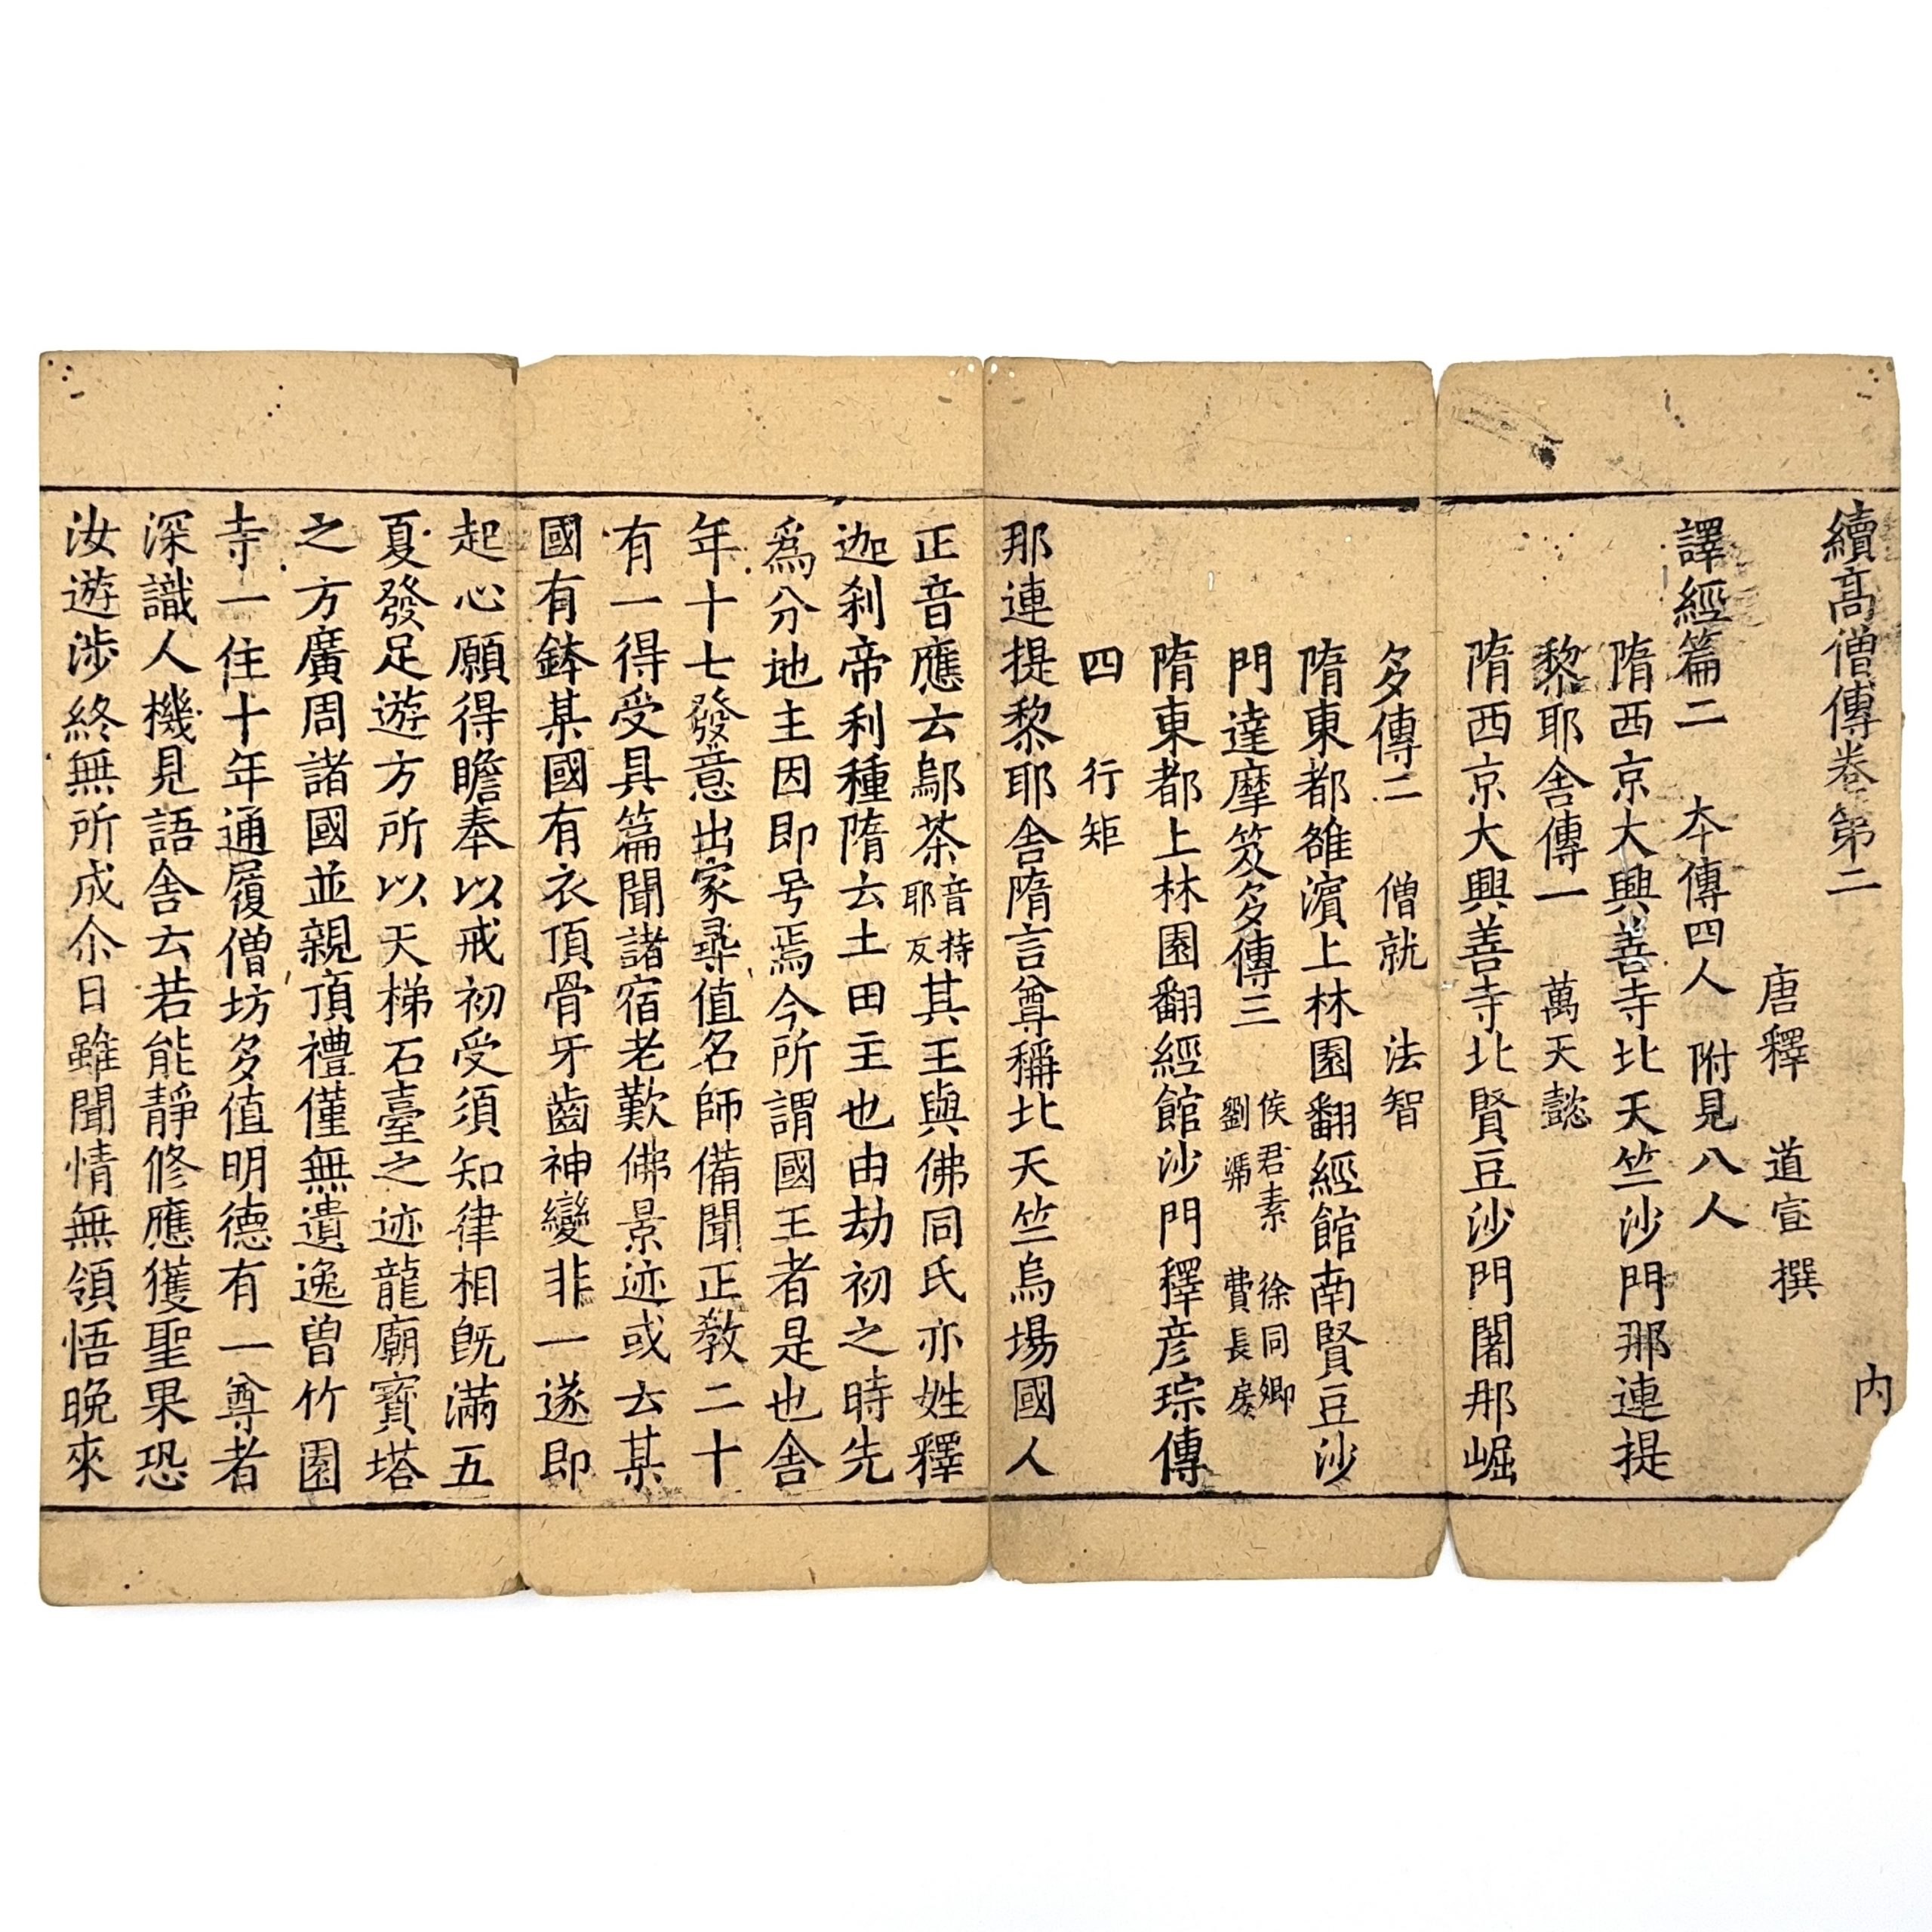 續高僧傳卷第二　　　　内
唐釋　道宣　撰
譯經篇二　本傳四人　附見八人
隋西京大興善寺北天竺沙門那連提
黎耶舍傳一　萬天懿
隋西京大興善寺北賢豆沙門闍那崛
多傳二　僧就　法智
隋東都雒濱上林園翻經館南賢豆沙
門達摩笈多傳三　侯君素　徐同卿　劉馮　費長房
隋東都上林園翻經館沙門釋彦琮傳
四　行矩
那連提黎耶舍隋言尊稱北天竺烏場國人
正音應云鄔荼音持耶反其王與佛同氏亦姓釋
迦刹帝利種隋云土田主也由劫初之時先
爲分地主因即号焉今所謂國王者是也舍
年十七發意出家尋值名師備聞正教二十
有一得受具篇聞諸宿老歎佛景迹或云某
國有鉢某國有衣頂骨牙齒神變非一遂即
起心願得瞻奉以戒初受須知律相既滿五
夏發足遊方所以天梯石臺之迹龍廟寶塔
之方廣周諸國並親頂禮僅無遺逸曾竹園
寺一住十年通履僧坊多值明德有一尊者
深識人機見語舍云若能靜修應獲聖果恐
汝遊涉終無所成尒日雖聞情無領悟晩來